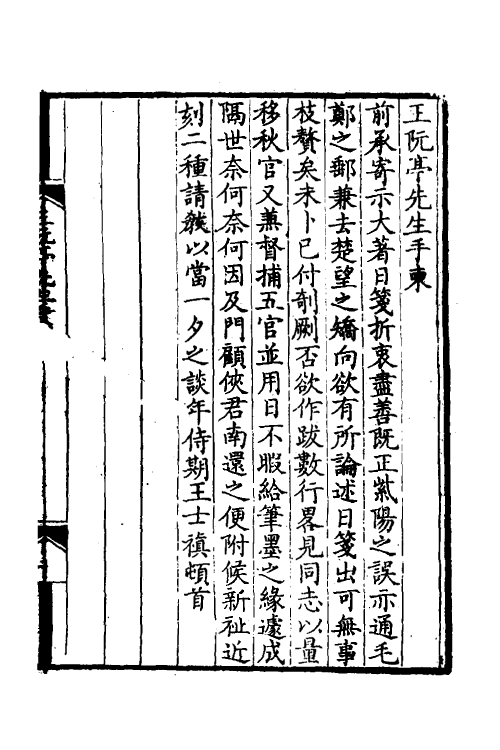 王阮亭先生手柬
前承寄示大著日箋折衷盡善既正紫陽之誤亦通毛
鄭之郵兼去楚望之矯向欲有所論述日箋出可無事
枝贅矣未卜已付剞劂否欲作跋數行畧見同志以量
移秋官又兼督捕五官並用日不暇給筆墨之緣遽成
隔世奈何奈何因及門顧俠君南還之便附候新祉近
刻二種請教以當一夕之談年侍期王士禛頓首